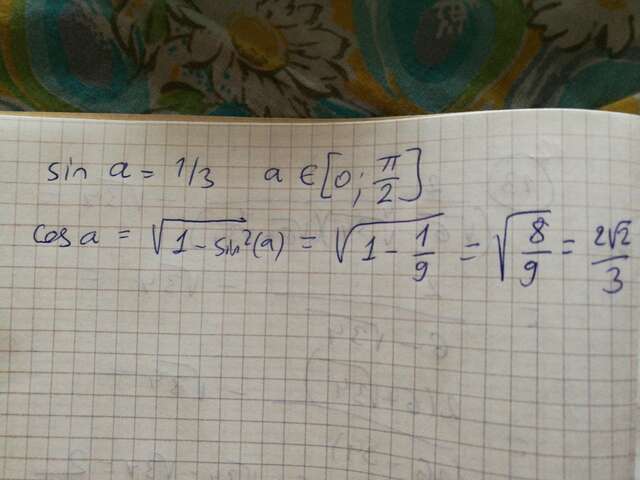 sin a = 1/3 a ∈ [0; π/2]
cos a = √(1 - sin²(a)) = √(1 - 1/9) = √(8/9) = 2√2/3